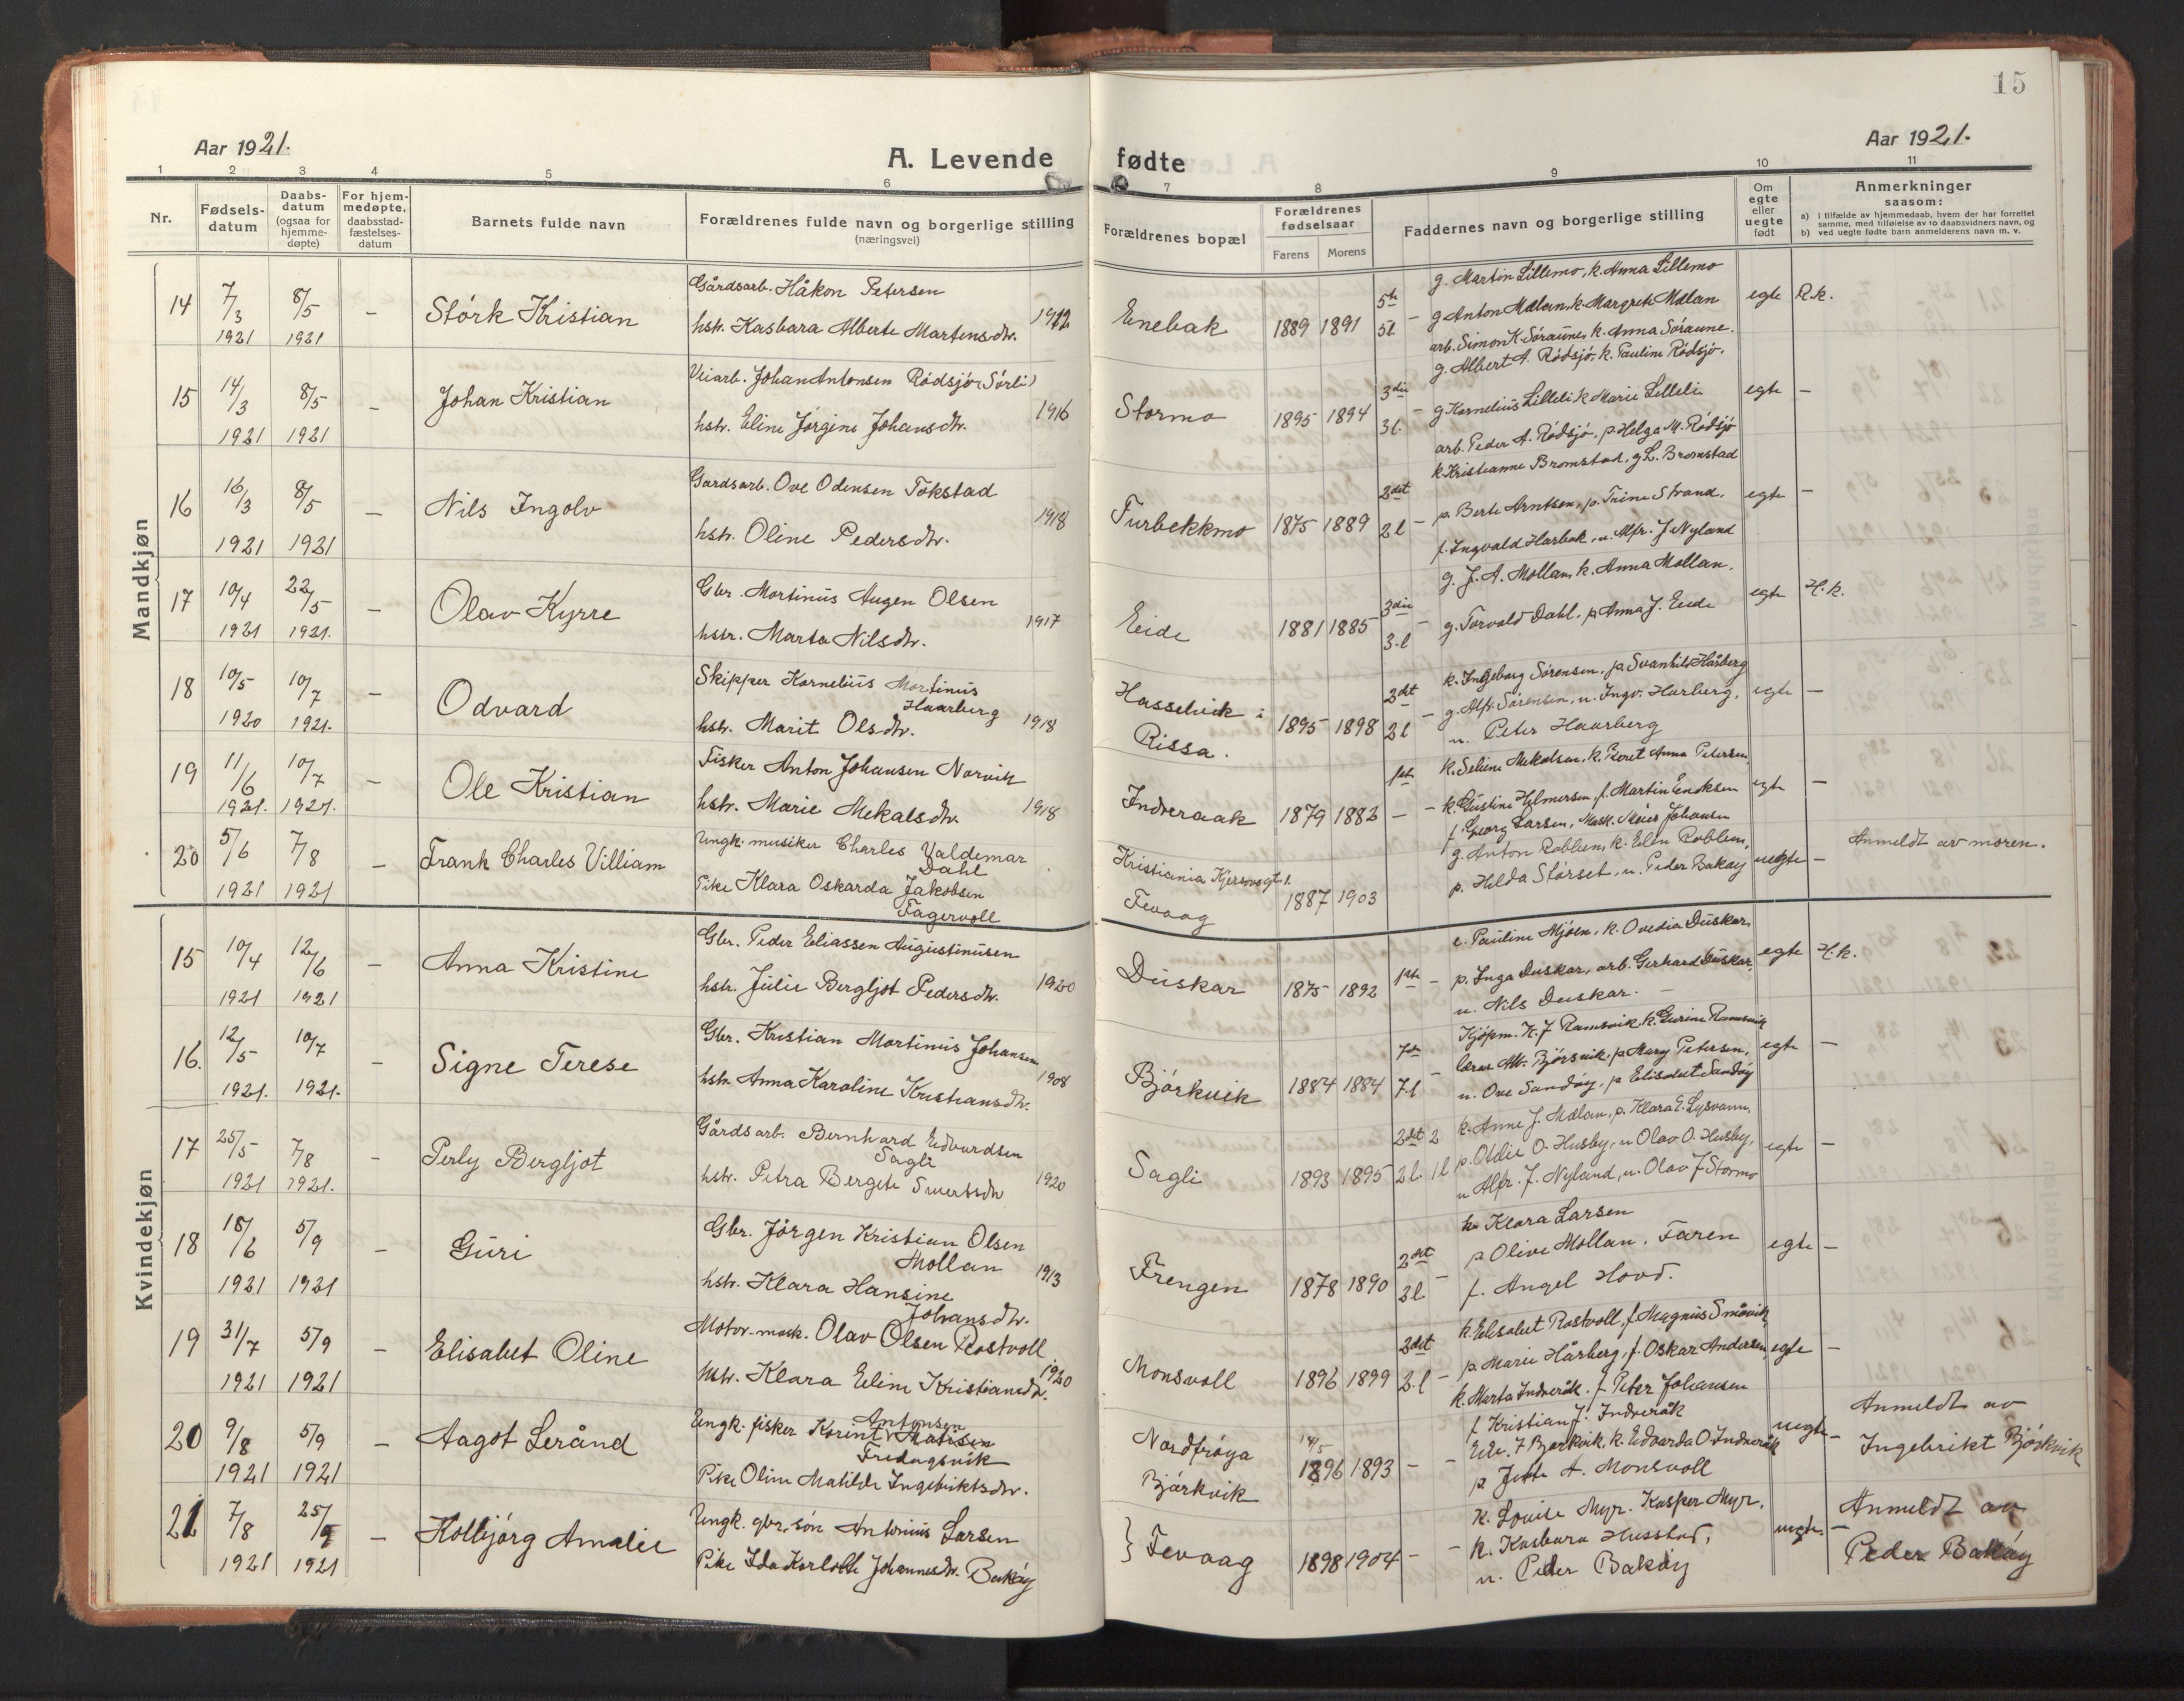 15
Aar 1921.
A. Levende fødte
Aar 1921.
1 2 3 4 5 6 7 8 9 10 11
Nr.
Fødsels-
datum
Daabs-
datum
(ogsaa for
hjemme-
døpte)
For hjem-
medøpte,
daabsstad-
fæstelses-
datum
Barnets fulde navn
Forældrenes fulde navn og borgerlige stilling
(næringsvei)
Forældrenes bopæl
Forældrenes
fødselsaar
Farens Morens
Faddernes navn og borgerlige stilling
Om
egte
eller
uegte
født
Anmerkninger
saasom:
a) i tilfælde av hjemmedaab, hvem der har forrettet
samme, med tilføielse av to daabsvidners navn, og
b) ved uegte fødte barn anmelderens navn m. v.
Mandkjøn
14 7/3 1921 8/5 1921 – Størk Kristian
Gårdsarb. Håkon Petersen
hstr. Kasbara Alberte Martensdtr. 1912
Enebak 1889 1891 5te 5l.
g. Martin Lillemo, k. Anna Lillemo
g Anton Mælan, k. Margrete Mælan
arb. Simon K. Søraune, k. Anna Søraune.
egte R.k.
15 14/3 1921 8/5 1921 – Johan Kristian
Veiarb. Johan Antonsen Rødsjø (Sørli)
hstr. Eline Jørgine Johansdtr. 1916
Stormo 1895 1894 3die 3l.
g. Albert A. Rødsjø, k. Pauline Rødsjø.
g Kornelius Lilleli k Marie Lilleli
arb. Peder A. Rødsjø, p. Helga M. Rødsjø
egte –
16 16/3 1921 8/5 1921 – Nils Ingolv
Gardsarb. Ove Odensen Tokstad
hstr. Oline Pedersdtr. 1918
Turbekkmo 1875 1889 2det 2l –
k Kristianne Bromstad, g L. Bromstad
p. Berte Arntsen, p. Trine Strand.
f. Ingvald Harbak, u. Alfr. J Nyland
egte –
17 10/4 1921 22/5 1921. – Olav Kyrre
Gbr. Martinus Augen Olsen
hstr. Marta Nilsdtr. 1917
Eide 1881 1885 3die 3.l –
g. J. A. Mollan, k. Anna Mollan.
g. Torvald Dahl. p Anna J. Eide
egte H.k.
18 10/5 1920 10/7 1921. – Odvard
Skipper Kornelius Martinus
Haarberg
hstr. Marit Olsdtr. 1918
Hasselvik i
Rissa. 1895 1898 2det 2l –
k. Ingeborg Sørensen, p Svanhild Hårberg
g. Alfr. Sørensen, u. Ingv. Harberg,
u. Peter Haarberg
egte –
19 11/6 1921. 10/7 1921. – Ole Kristian
Fisker Anton Johansen Narvik
hstr. Marie Mekalsdtr. 1918
Indreraak 1879 1882 1ste –
k. Seliene Mekalsen, k. Beret Anna Petersen,
k. Gustine Hilmersen, f. Martin Enoksen
f. Georg Larsen, Mask. Meier Johansen
egte –
20 5/6 1921 7/8 1921 – Frank Charles Villiam
Ungk. musiker Charles Valdemar
Dahl
Pike Klara Oskarda Jakobsen
Fagervoll
Kristiania
Fevaag 1887 1903
g. Anton Roblien, k. Elen Roblien,
p. Hilda Størset, u. Peder Bakøy
uegte – Anmeldt av moren.
Kvindekjøn
15 10/4 1921 12/6 1921 – Anna Kristine
Gbr. Peder Eliassen Augustinusen
hstr. Julie Bergljot Pedersdtr. 1920
Duskar 1875 1892 1ste –
e. Pauline Mjøen, k. Ovedia Duskar,
p. Inga Duskar, arb. Gerhard Duskar,
u. Nils Duskar. –
egte H.k.
16. 12/5 1921. 10/7 1921. – Signe Terese
Gbr. Kristian Martinus Johansen
hstr. Anna Karoline Kristiansdtr. 1908
Bjørkvik 1884 1884 7de 7l –
Kjøpm. K. J Ramsvik, k. Gurine Ramsvik
lærer Alb. Bjørsvik, p Mary Petersen,
u. Ove Sandøy, p Elisabet Sandøy
egte –
17 25/5 1921 7/8 1921. – Perly Bergljot
Gårdsarb. Bernhard Edvardsen
Sagli
hstr. Petra Bergete Sivertsdtr 1920
Sagli 1893 1895 2det 2 2l. 1l
k. Anne J. Mælan, p. Klara E. Lysvann,
p. Otelie O. Husby, u Olav O. Husby,
u Alfr. J. Nyland, u. Olav J Stormo
egte –
18 18/6 1921 5/9 1921 – Guri
Gbr. Jørgen Kristian Olsen
Mollan
hstr. Klara Hansine
Johansdtr. 1913
Frengen 1878 1890 2det 2l –
k Klara Larsen
p Olive Mollan. Faren
f. Angel Hovd.
egte –
19 31/7 1921 5/9 1921 – Elisabet Oline
Motor-mask. Olav Olsen Rostvoll
hstr. Klara Eline Kristiansdtr. 1920
Monsvoll 1896 1899 2det 2.l –
k. Elisabet Rostvoll, f. Magnus Småvik,
p. Marie Hårberg, f. Oskar Andersen,
k. Marta Indreråk. f. Peter Johansen
egte –
20 9/8 1921 5/9 1921 – Aagot Lerånd
Ungk. fisker Korint Antonsen
Fredagsvik
Pike Oline Matilde Ingebriktsdtr.
Nordfrøya
Bjørkvik 14/5 1896 1893 – –
f Kristian J. Indreråk
Ede. J Bjørkvik, k. Edvarda O. Indreråk
p Jette A. Monsvoll
uegte – Anmeldt av
Ingebrikt Bjørkvik
21 7/8 1921 25/9 1921 – Kolbjørg Amalie
Ungk. gbr.søn Antonius Larsen
Pike Ida Karlotte Johannesdtr. Bakøy
} Fevaag 1898 1904 – –
k. Lovise Myr. Kasper Myr.
k. Kasbara Husstad,
u. Peder Bakøy
uegte. – Anmeldt av
Peder Bakøy